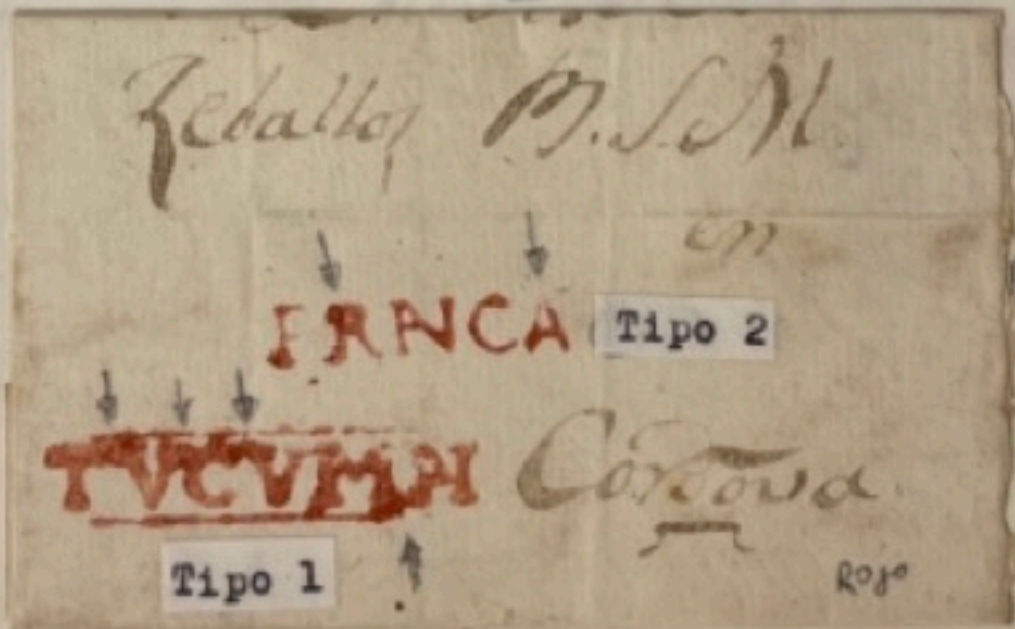 Zeballos B.S.M.
en
FRNCA Tipo 2
TVCVMAN Cordova
Tipo 1
Rojo